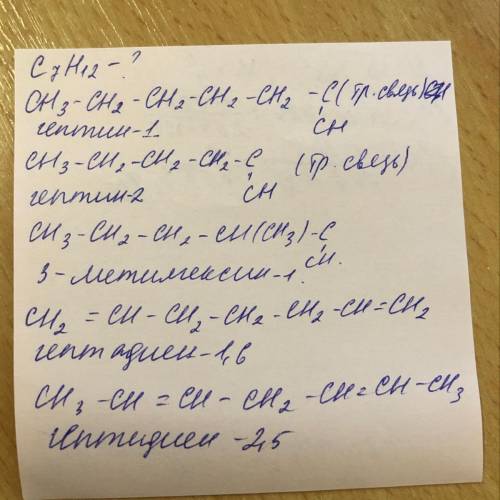 C7H12 - ?
CH3-CH2-CH2-CH2-CH2 -C (тр. связь) CH
CH
гептин-1
CH3-CH2-CH2-CH2-C (тр. связь)
CH
гептин-2
CH3-CH2-CH2-CH(CH3)-C
CH.
3-метилгексин-1.
CH2 = CH-CH2-CH2-CH2-CH=CH2
гептадиен-1,6
CH3-CH = CH-CH2-CH=CH-CH3
гептадиен -2,5